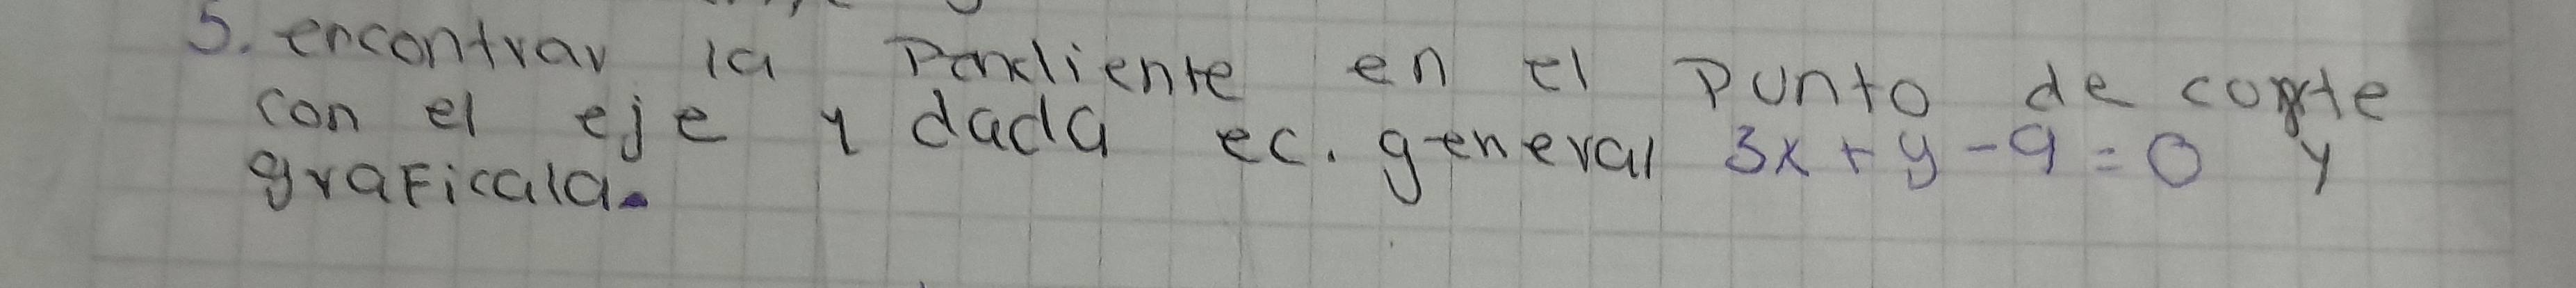 5. encontrar la Pendiente en el Punto de corte
con el eje y dada ec. general 3x + y - 9 = 0 y
graficala.